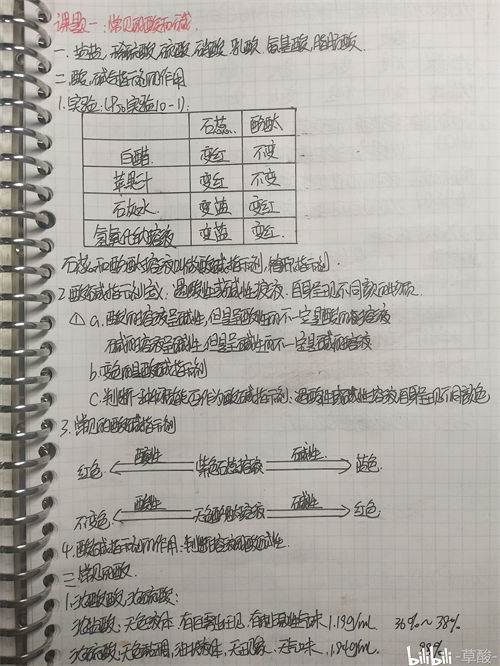 课题一:常见的酸和碱.
一.盐酸,稀硫酸,硫酸,硝酸,乳酸,氨基酸,脂肪酸.
二.酸,碱与指示剂的作用
1.实验:(P50实验10-1):
石蕊 酚酞
白醋 变红 不变
苹果汁 变红 不变
石灰水 变蓝 变红
氢氧化钠溶液 变蓝 变红
石蕊和酚酞溶液叫做酸碱指示剂,简称指示剂.
2.酸碱指示剂定义:遇酸性或碱性溶液,自身呈现不同颜色的物质.
① a.酸的溶液呈酸性,但是呈酸性的不一定是酸的溶液
碱的溶液呈碱性,但是呈碱性的不一定是碱的溶液
b.变色的是酸碱指示剂
C.判断某种物质能否作为酸碱指示剂:遇酸性或碱性溶液自身呈现不同颜色
3.常见的酸碱指示剂
红色 酸性 紫色石蕊溶液 碱性 蓝色
不变色 酸性 无色酚酞溶液 碱性 红色
4.酸碱指示剂的作用:判断溶液的酸碱性.
三.常见的酸
1.浓盐酸,浓硫酸:
浓盐酸:无色液体,有白雾出现,有刺激性气味 1.19g/mL 36%~38%
浓硫酸:无色粘稠,油状液体,无现象,无气味, 1.84g/mL 98%
bilibili -草酸-